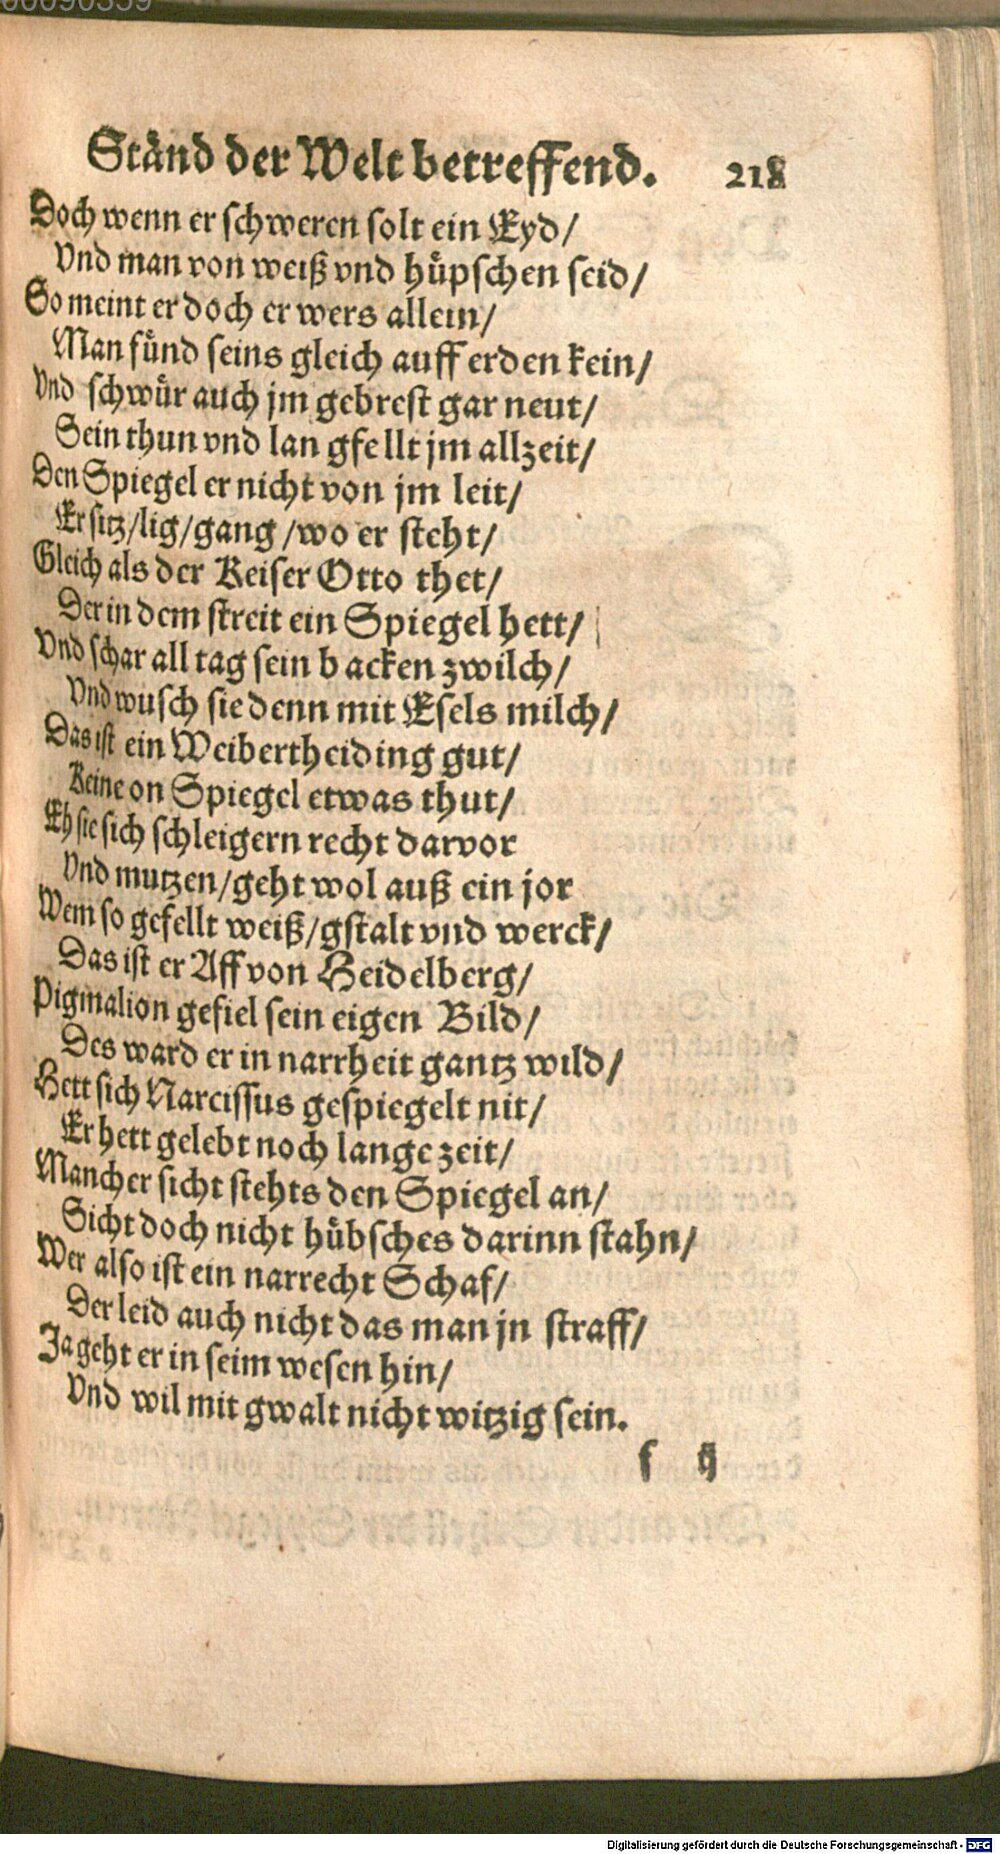 Stånd der Welt betreffend. 218
Doch wenn er schweren solt ein Eyd/
Vnd man von weiß vnd hüpschen seid/
So meint er doch er wers allein/
Man fünd seins gleich auff erden kein/
Vnd schwür auch jm gebrest gar neut/
Sein thun vnd lan gfellt jm allzeit/
Den Spiegel er nicht von jm leit/
Er sitz/lig/gang/wo er steht/
Gleich als der Keiser Otto thet/
Der in dem streit ein Spiegel hett/
Vnd schar all tag sein backen zwilch/
Vnd wusch sie denn mit Esels milch/
Das ist ein Weibertheiding gut/
Keine on Spiegel etwas thut/
Eh sie sich schleigern recht darvor
Vnd mutzen/geht wol auß ein jor
Wem so gefellt weiß/gstalt vnd werck/
Das ist er Aff von Heidelberg/
Pigmalion gefiel sein eigen Bild/
Des ward er in narrheit gantz wild/
Hett sich Narcissus gespiegelt nit/
Er hett gelebt noch lange zeit/
Mancher sicht stehts den Spiegel an/
Sicht doch nicht hübsches darinn stahn/
Wer also ist ein narrecht Schaf/
Der leid auch nicht das man jn straff/
Ja geht er in seim wesen hin/
Vnd wil mit gwalt nicht witzig sein.
f ij
Digitalisierung gefördert durch die Deutsche Forschungsgemeinschaft - DFG